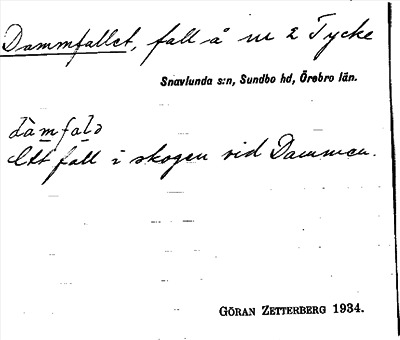 Dammfallet, fall å nr 2 Tycke
Snavlunda s:n, Sundbo hd, Örebro län.
Ett fall i skogen vid Dammen.
GÖRAN ZETTERBERG 1934.